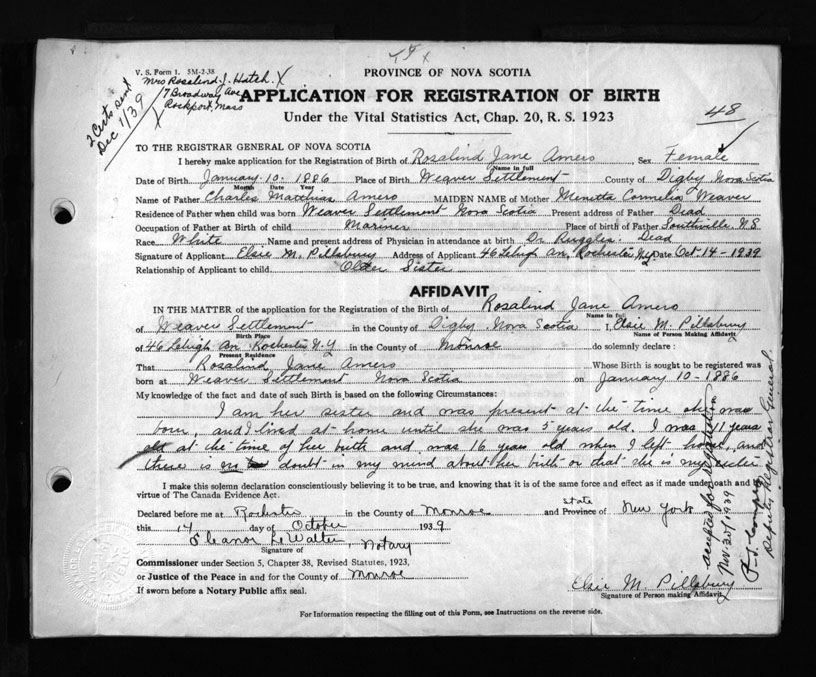 V. S. Form 1. 5M-2-38
Mrs Rosalind J. Hatch. X
7 Broadway Ave
Rockport, Mass
2 Certs sent
Dec 1/39
48
PROVINCE OF NOVA SCOTIA
APPLICATION FOR REGISTRATION OF BIRTH
Under the Vital Statistics Act, Chap. 20, R. S. 1923
TO THE REGISTRAR GENERAL OF NOVA SCOTIA
I hereby make application for the Registration of Birth of Rosalind Jane Amero Sex Female
Name in full
Date of Birth January 10. 1886 Place of Birth Weaver Settlement County of Digby Nova Scotia
Month Date Year
Name of Father Charles Matthias Amero MAIDEN NAME of Mother Minetta Cornelia Weaver
Residence of Father when child was born Weaver Settlement Nova Scotia Present address of Father Dead
Occupation of Father at Birth of child Mariner Place of birth of Father Southville N.S
Race White Name and present address of Physician in attendance at birth Dr Ruggles. Dead
Signature of Applicant Elsie M. Pillsbury Address of Applicant 46 Lehigh Av, Rochester N.Y Date Oct-14-1939
Relationship of Applicant to child Older Sister
AFFIDAVIT
IN THE MATTER of the application for the Registration of the Birth of Rosalind Jane Amero
Name in full
of Weaver Settlement in the County of Digby, Nova Scotia I, Elsie M. Pillsbury
Birth Place Name of Person Making Affidavit
of 46 Lehigh Av Rochester N.Y in the County of Monroe do solemnly declare:
Present Residence
That Rosalind Jane Amero Whose Birth is sought to be registered was
born at Weaver Settlement Nova Scotia on January 10-1886
My knowledge of the fact and date of such Birth is based on the following Circumstances:
I am her sister and was present at the time she was
born, and I lived at home until she was 5 years old. I was 11 years
old at the time of her birth and was 16 years old when I left home, and
there is no doubt in my mind about her birth or that she is my sister.
I make this solemn declaration conscientiously believing it to be true, and knowing that it is of the same force and effect as if made under oath and by
virtue of The Canada Evidence Act.
state
Declared before me at Rochester in the County of Monroe and Province of New York
this 14 day of October 1939
Eleanor L. Walter, Notary
Signature of
Commissioner under Section 5, Chapter 38, Revised Statutes, 1923,
or Justice of the Peace in and for the County of Monroe
If sworn before a Notary Public affix seal.
Elsie M. Pillsbury
Signature of Person making Affidavit
For Information respecting the filling out of this Form, see Instructions on the reverse side.
accepted for registration
Nov. 25/1939
Deputy Registrar General